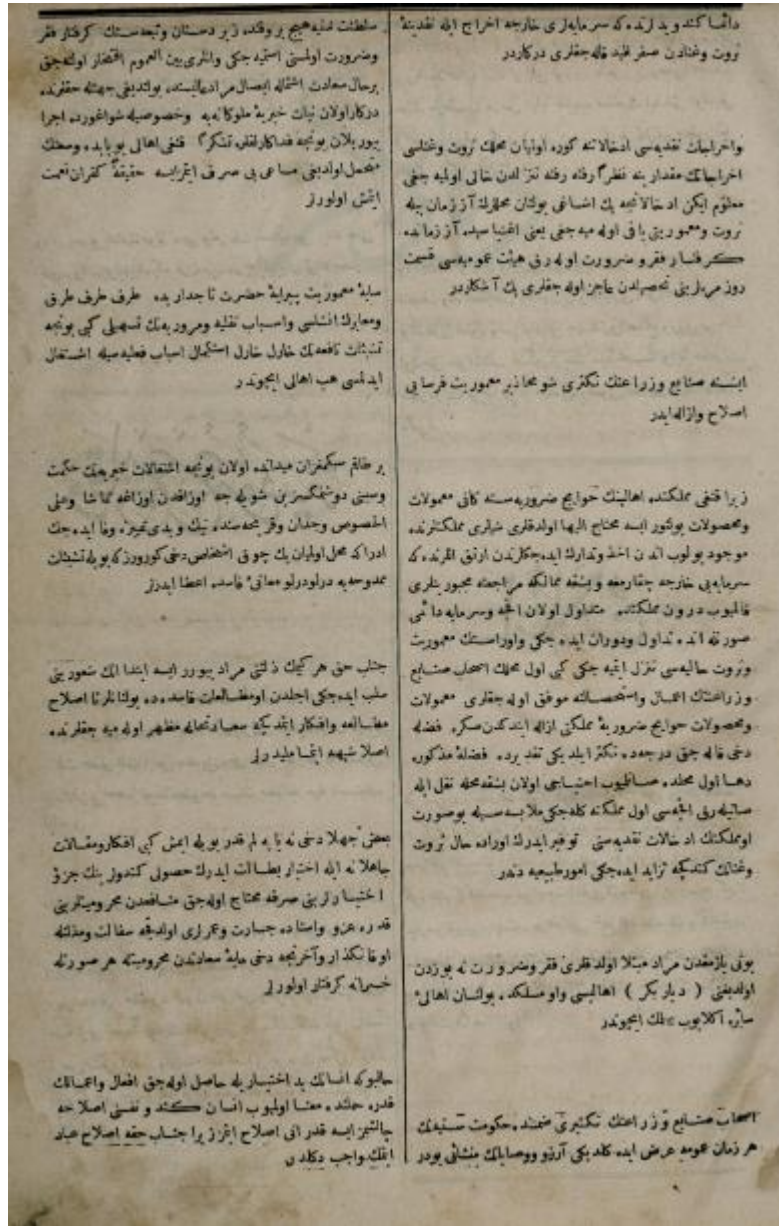 دائما كندو يدلرنده كه سرمايه‌لرى خارجه اخراج ايله نقدينهٔ
ثروت وغنادن صفر اليد قاله جقلرى دركاردر
واخراجات نقديه‌سى ادخالاتنه كوره اولميان محلك ثروت وغناسى
اخراجاتك مقدارينه نظراً رفته رفته تنزلدن خالى اولميه جغى
معلوم ايكن ادخالاتجه پك اشاغى بولنان محللرك آز زمان بيله
ثروت ومعموريتى باقى اوله ميه جغى يعنى اغنيا سيده آز زمانده
كرفتار فقر و ضرورت اوله رق هيئت عموميه‌سى قسمت
روز مره‌لرينى تحصيلدن عاجز اوله جقلرى پك آشكاردر
ايشته صنايع وزراعتك تكثرى شو محاذير معموريت فرسايى
اصلاح وازاله ايدر
زيرا قنغى مملكتده اهالينك حوايج ضروريه‌سنه كافى معمولات
ومحصولات بولنور ايسه محتاج اليها اولدقلرى شيلرى مملكتلرنده
موجود بولوب اندن اخذ وتدارك ايده جكلرندن ارتق الرنده كه
سرمايه‌يى خارجه چقارمغه و بشقه ممالكه مراجعته مجبوريتلرى
قالميوب درون مملكتده متداول اولان اقچه وسرمايه دائمى
صورتده انده تداول ودوران ايده جكى واوراستك معموريت
وثروت حاليه‌سى تنزل ايتميه جكى كبى اول محلك اصحاب صنايع
و زراعتك اعمال واستحصالنه موفق اوله جقلرى معمولات
ومحصولات حوايج ضروريهٔ مملكتى ازاله ايتدكدن صكره فضله
دخى قاله جق درجه‌ده تكثر ايلديكى تقديرده فضلهٔ مذكوره
دها اول محلده صاتليوب احتياجى اولان بشقه محله نقل ايله
صاتيله‌رق اقچه‌سى اول مملكته كله‌جكى ملابسه‌سيله بوصورت
اومملكتك ادخالات نقديه‌سنى توفير ايدرك اوراده حال ثروت
وغنانك كتدكجه تزايد ايده‌جكى امور طبيعيه دندر
بونى يازمقدن مراد مبتلا اولدقلرى فقر وضرورت نه يوزدن
اولديغنى ( ديار بكر ) اهاليسى واومسلكده بولنان اهالىٔ
سائره اكلايوب بيلمك ايچوندر
اصحاب صنايع و زراعتك تكثيرى ضمننده حكومت سنيه‌نك
هر زمان عمومه عرض ايده كلديكى آرزو ووصايانك منشائى بودر
سلطنت سنيه هيچ بر وقتده زير دستان وتبعه‌سنك كرفتار فقر
وضرورت اولمسنى استميه جكى وانلرى بين العموم افتخار اوله‌جق
برحال سعادت اشتماله ايصال مراد عاليسنده بولنديغى جهتله حقلرنده
دركار اولان نيات خيريهٔ ملوكانه‌يه وخصوصيله شواغورده اجرا
بيوريلان بونجه فداكارلقلره تشكراً قنغى اهالى بويابده وسعتك
متحمل اولديغى مساعى‌يى صرف ايتمز ايسه حقيقةً كفران نعمت
ايتمش اولورلر
سايهٔ معموريت پيرايهٔ حضرت تاجداريده طرف طرف طرق
ومعابرك انشاسى واسباب نقليه ومروريه‌نك تسهيلى كبى بونجه
تشبثات نافعه‌نك خارل خارل استكمال اسباب فعليه‌سيله اشتغال
ايدلمسى هپ اهالى ايچوندر
بر طاقم سبكمغزان ميدانده اولان بونجه اشتغالات خيريه‌نك حكمت
وسببنى دوشنمكسزين شويله‌جه اوزاقدن اوزاغه تماشا وعلى
الخصوص وجدان وقريحه‌سنده نيك وبدى تمييزه وفا ايده‌جك
ادراكه محل اوليان پك چوق اشخاصى دخى كورورزكه بويله تشبثات
ممدوحه‌يه درلودرلو معانىٔ فاسده اعطا ايدرلر
جناب حق هر كيمك ذلتنى مراد بيورر ايسه ابتدا انك شعورينى
سلب ايده‌جكى اجلدن اومطالعات فاسده‌ده بولنانلر تا اصلاح
مطالعه وافكار ايتمدكجه سعادتحاله مظهر اوله ميه جقلرنده
اصلا شبهه ايتماملیدرلر
بعض جهلا دخى نه يا په لم قدر بويله ايمش كبى افكارومقالات
جاهلانه ايله اختيار بطالت ايدرك حصولى كندولرينك جزؤ
اختيارلرينى صرفه محتاج اوله‌جق منافعدن محروميتلرينى
قدره عزو واسناده جسارت وعمرلرى اولدقجه سفالت ومذلتله
اوقاتكذار وآخرتجه دخى مايهٔ سعادتدن محروميتله هر صورتله
خسرانه كرفتار اولورلر
حالبوكه انسانك يد اختياريله حاصل اوله‌جق افعال واعمالنك
قدره حملنده معنا اولميوب انسان كندو نفسنى اصلاحه
چالشمز ايسه قدر انى اصلاح ايتمز زيرا جناب حقه اصلاح عباد
ايتمك واجب دكلدر